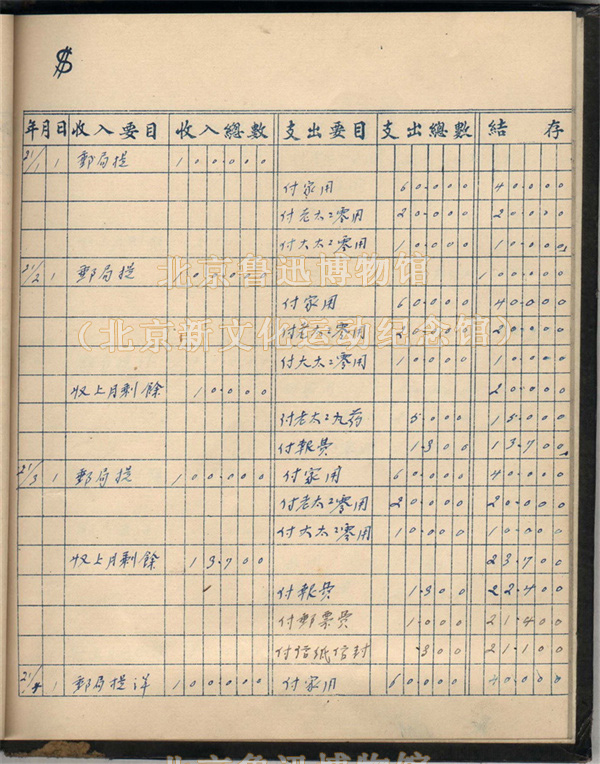 $
年月日 收入要目 收入總數 支出要目 支出總數 結存
21/1 1 郵局提 100.000
付家用 60.000 40.000
付老太〻零用 20.000 20.000
付大太〻零用 10.000 10.000
21/2 1 郵局提 100.000 100.000
付家用 60.000 40.000
付老太〻零用 20.000 20.000
付大太〻零用 10.000 10.000
收上月剩餘 10.000 20.000
付老太〻丸药 5.000 15.000
付報費 1.300 13.700
21/3 1 郵局提 100.000 付家用 60.000 40.000
付老太〻零用 20.000 20.000
付大太〻零用 10.000 10.000
收上月剩餘 13.700 23.700
付報費 1.300 22.400
付郵票費 1.000 21.400
付信纸信封 .300 21.100
21/4 1 郵局提洋 100.000 付家用 60.000 40.000
北京鲁迅博物馆
（北京新文化运动纪念馆）
北京鲁迅博物馆